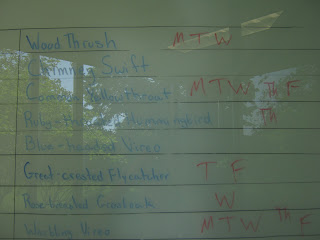 Wood Thrush M T W
Chimney Swift
Common Yellowthroat M T W Th F
Ruby-throated Hummingbird Th
Blue-headed Vireo
Great-crested Flycatcher T F
Rose-breasted Grosbeak W
Warbling Vireo M T W Th F